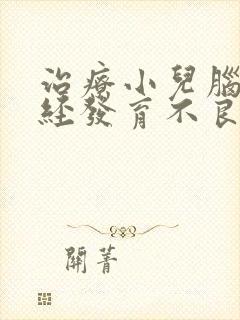 治療小兒腦
經發育不良
關菁